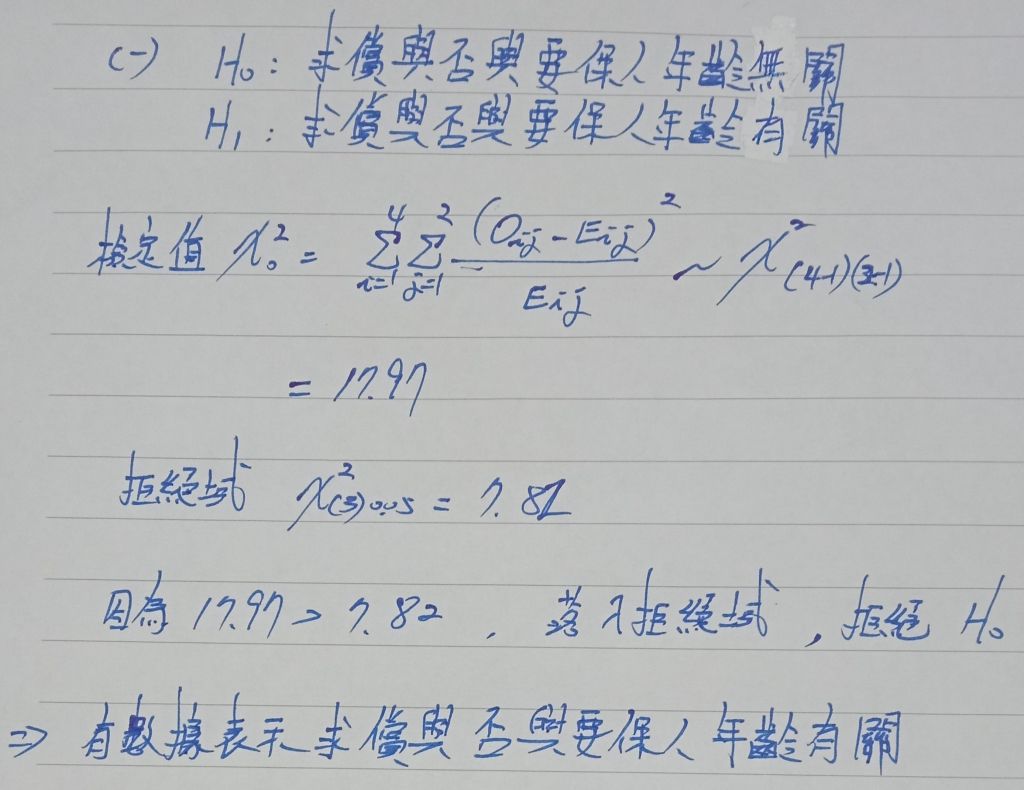 (一) H₀：求償與否與要保人年齡無關
H₁：求償與否與要保人年齡有關
檢定值 χ₀² = Σ_{i=1}^{4} Σ_{j=1}^{2} (O_{ij} - E_{ij})² / E_{ij} ~ χ²_{(4-1)(2-1)}
= 17.97
拒絕域 χ²_{(3)0.05} = 7.82
因為 17.97 > 7.82，落入拒絕域，拒絕 H₀
⇒ 有數據表示求償與否與要保人年齡有關